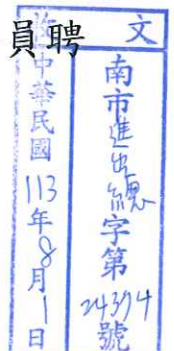 文
南市進出總字第24394號
員聘
中華民國113年8月1日